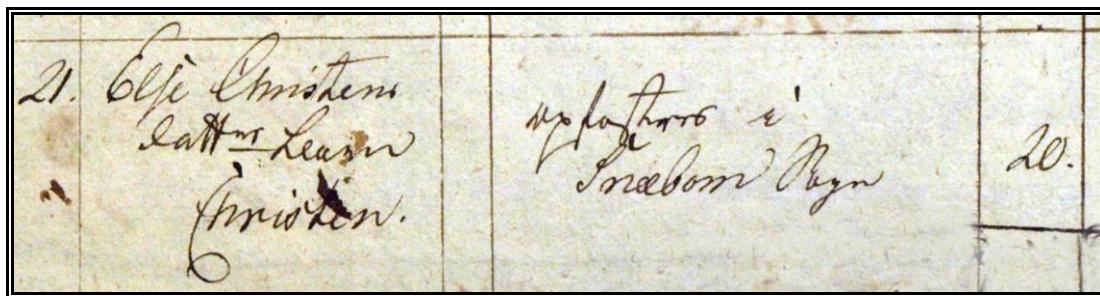 21. Else Christens
dattrs
Christen.
opfostres i
Snæbom Sogn
20.